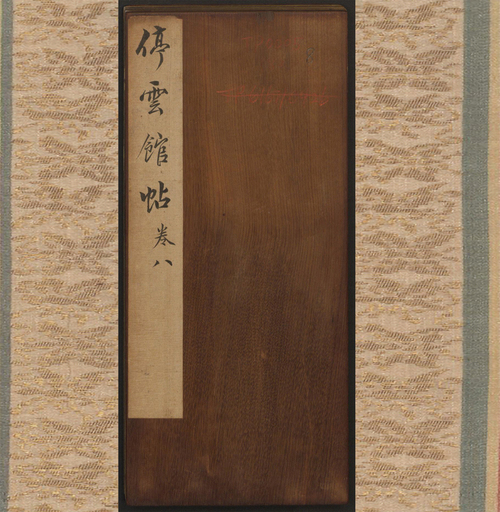 停雲館帖卷八